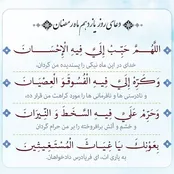 دعای روز یازدهم ماه رمضان
اللَّهُمَّ حَبِّبْ إِلَيَّ فِيهِ الْإِحْسَانَ
خدای در این ماه نیکی را پسندیده من گردان،
وَكَرِّهْ إِلَيَّ فِيهِ الْفُسُوقَ وَ الْعِصْيَانَ
و نادرستی ها و نافرمانی ها را مورد کراهت من قرار ده
وَحَرِّمْ عَلَيَّ فِيهِ السَّخَطَ وَ النِّيرَانَ
و خشم و آتش برافروخته را بر من حرام گردان
بِعَوْنِكَ يَا غِيَاثَ الْمُسْتَغِيثِينَ
به یاری ات، ای فریادرس دادخواهان.